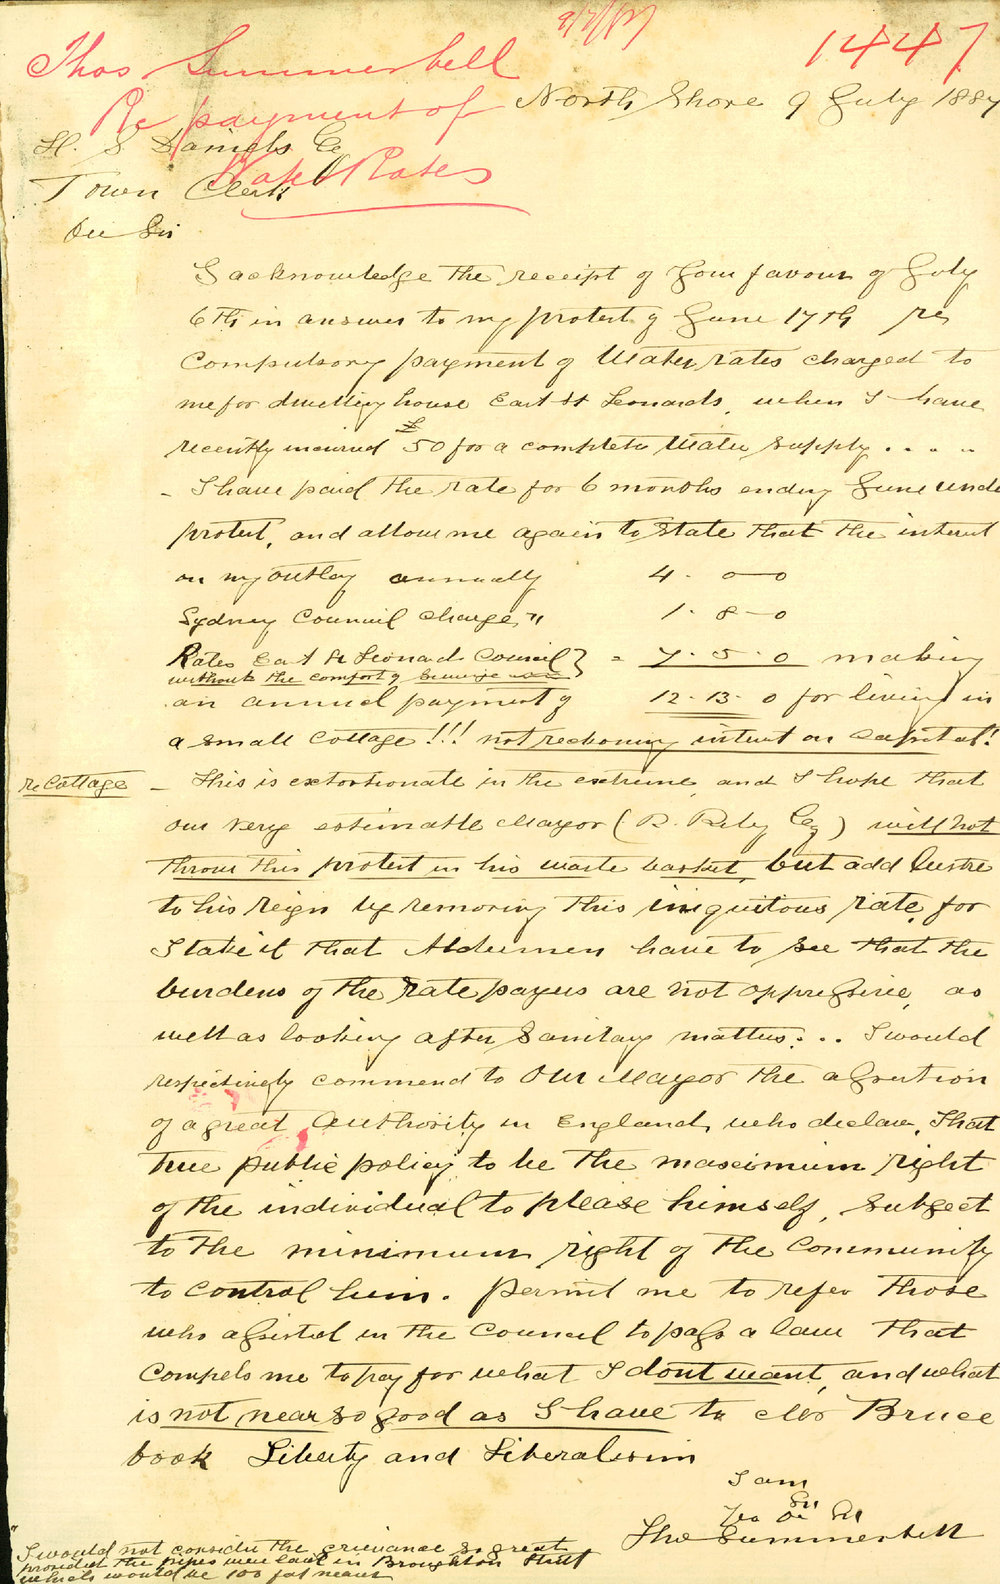 9/7/87
1447
Thos Summerbell
Re payment of
Water Rates
North Shore 9 July 1887
H. S Daniels Eq
Town Clerk
De Sir
I acknowledge the receipt of your favour of July
6th in answer to my protest of June 17th re
compulsory payment of Water rates charged to
me for dwelling house East St Leonards, when I have
recently incurred £50 for a complete Water supply....
- I have paid the rate for 6 months ending June unde
protest, and allow me again to state that the interest
on my outlay annually 4. 0-0
Sydney Council charge " 1. 8-0
Rates East St Leonards Council } = 7. 5. 0 making
without the comfort of
an annual payment of 12. 13. 0 for living in
a small cottage!!! not reckoning interest on capital!
re Cottage - This is extortionate in the extreme, and I hope that
our very estimable Mayor (B. Eq) will not
throw this protest in his waste basket, but add lustre
to his reign by removing this iniquitous rate, for
I take it that Aldermen have to see that the
burdens of the rate payers are not oppressive, as
well as looking after Sanitary matters... I would
respectingly commend to our Mayor the assertion
of a great Authority in England, who declare, that
true public policy to be the maximum right
of the individual to please himself, subject
to the minimum right of the Community
to control him. Permit me to refer those
who assisted in the Council to pass a law that
compels me to pay for what I dont want, and what
is not near so good as I have to Mr Bruce
book Liberty and Liberalism
I am
Sir
Yrs Ob St
Tho Summerbell
"I would not consider the grievance so great
provided the pipes were laid in Broughton Street
which would be 100 feet nearer